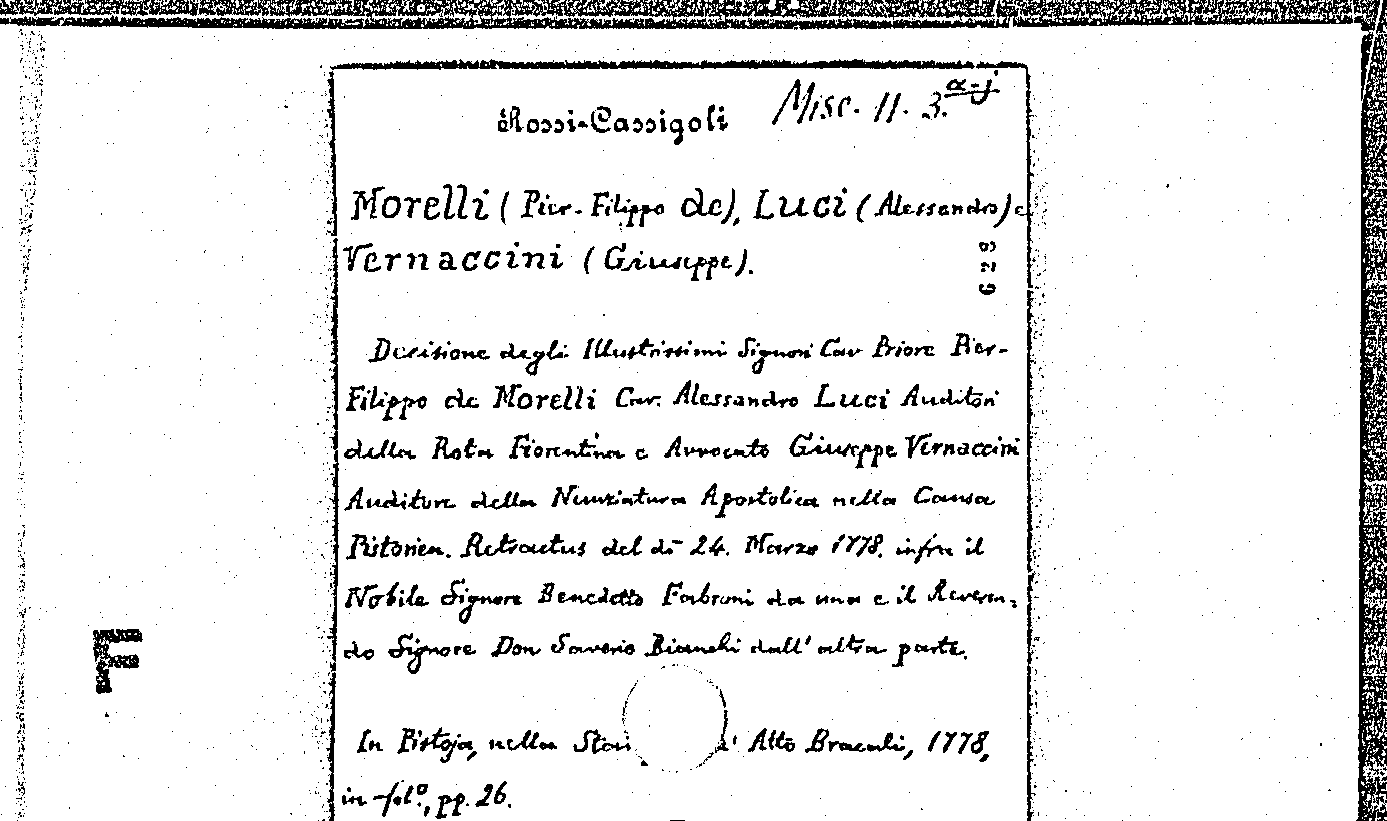 Rossi-Cassigoli Misc. 11. 3. a-j
Morelli (Pier-Filippo de), Luci (Alessandro) e
Vernaccini (Giuseppe).
628
Decisione degli Illustrissimi Signori Cav Priore Pier-
Filippo de Morelli Cav. Alessandro Luci Auditori
della Rota Fiorentina e Avvocato Giuseppe Vernaccini
Auditore della Nunziatura Apostolica nella Causa
Pistorien. Retractus del dì 24. Marzo 1778. infra il
Nobile Signore Benedetto Fabroni da una e il Reveren-
do Signore Don Saverio Bianchi dall'altra parte.
In Pistoja, nella Atto Bracali, 1778,
in-fol°., pp. 26.
F